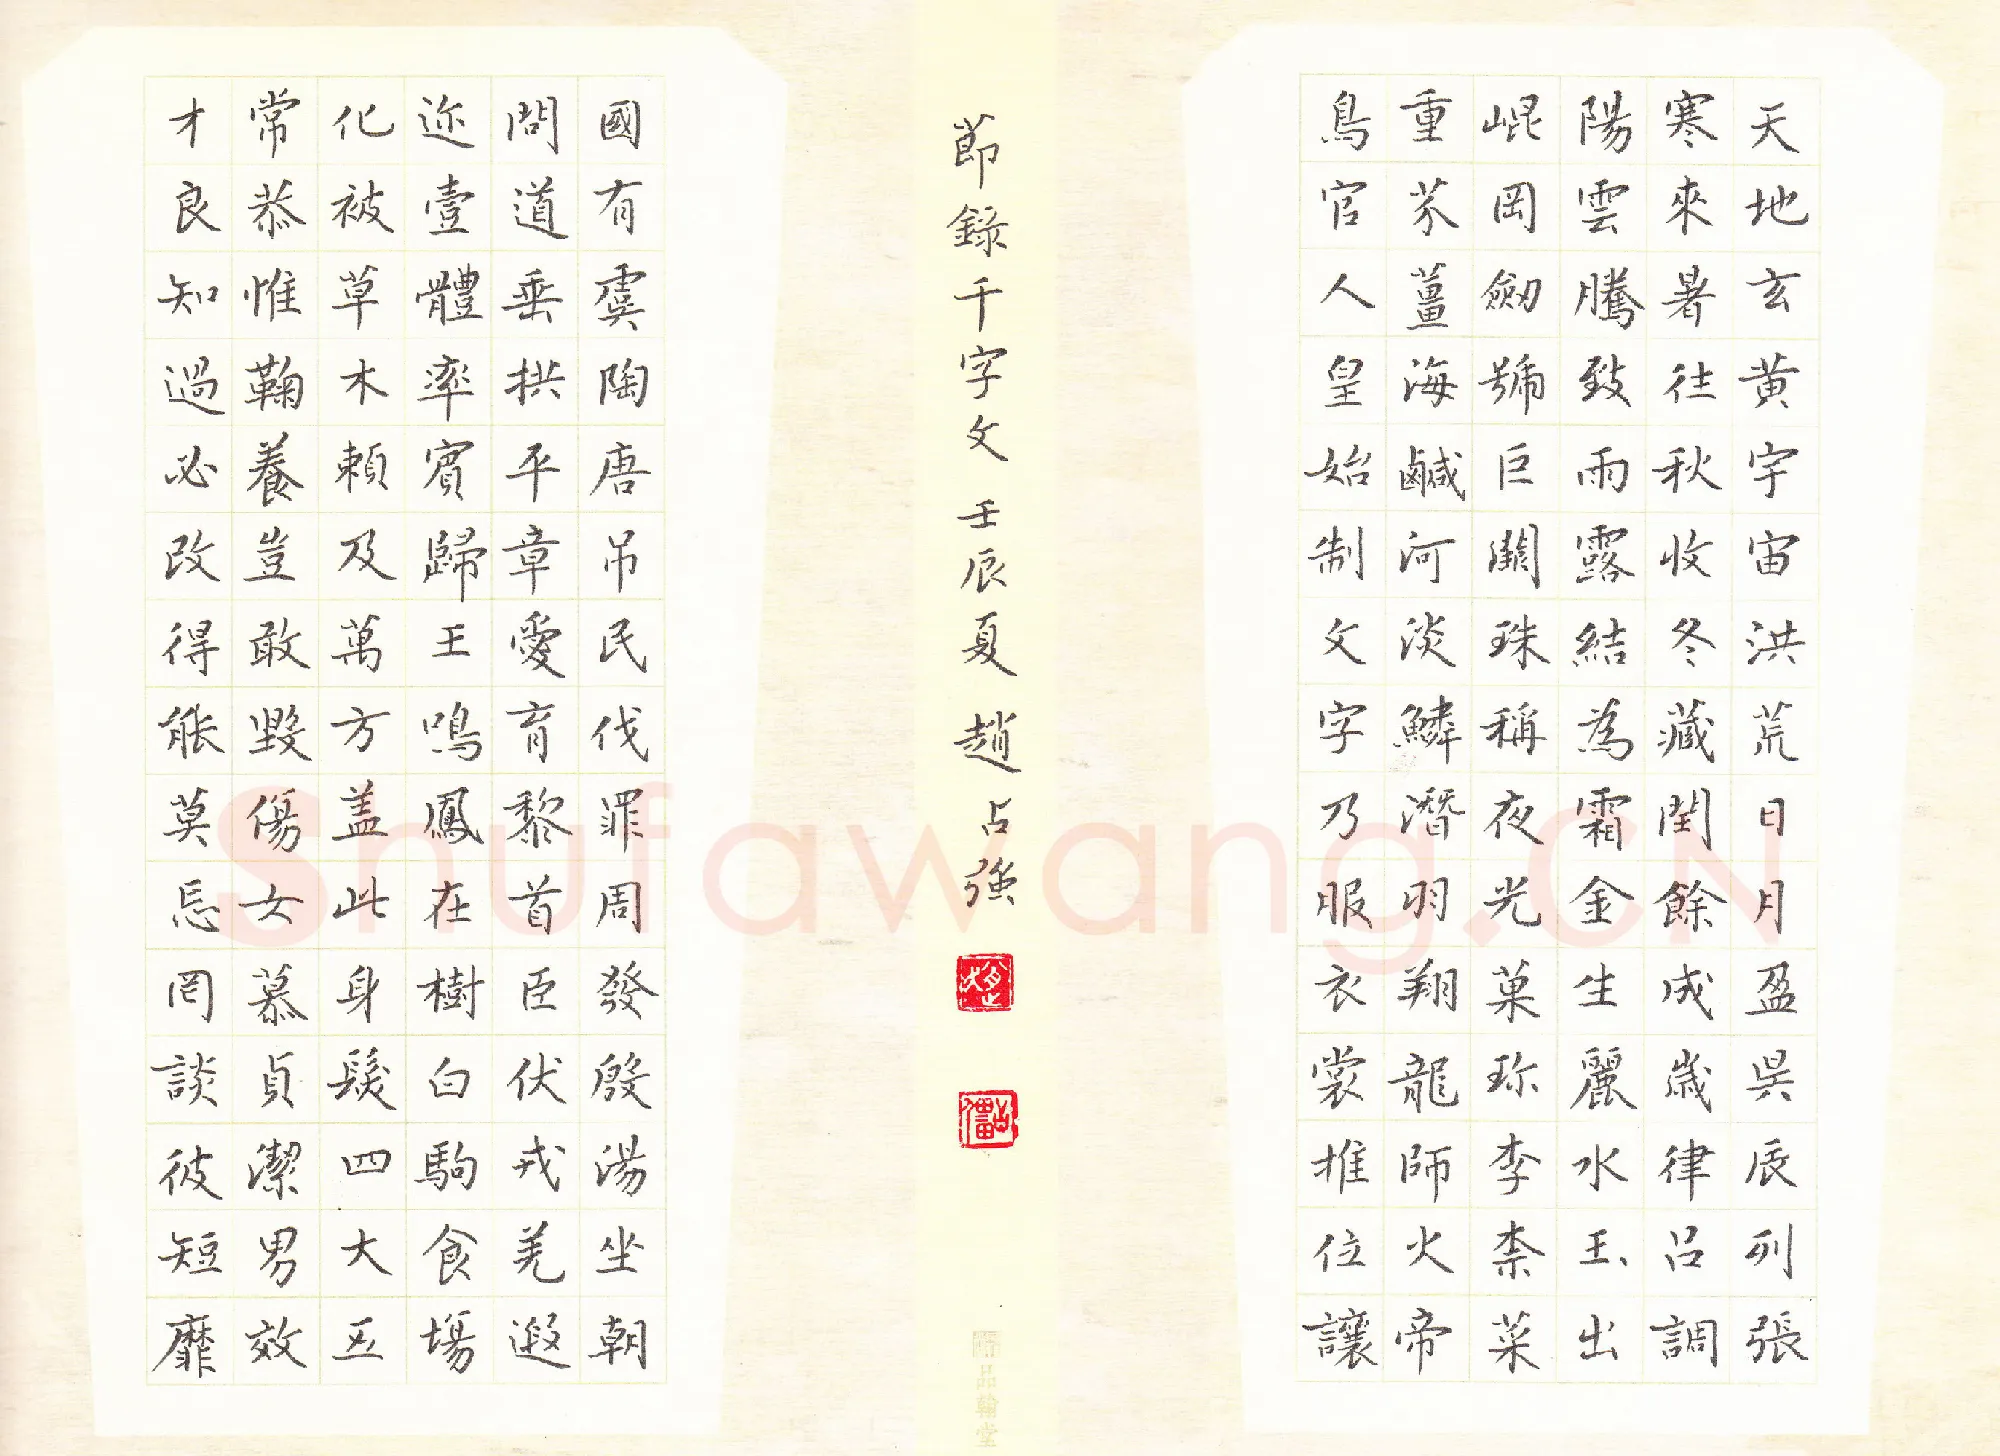 天地玄黄宇宙洪荒日月盈昃辰列張
寒來暑往秋收冬藏閏餘成歲律呂調
陽雲騰致雨露結為霜金生麗水玉出
崐岡劒號巨闕珠稱夜光菓珎李柰菜
重芥薑海鹹河淡鱗潛羽翔龍師火帝
鳥官人皇始制文字乃服衣裳推位讓
節錄千字文 壬辰夏 趙占強
趙
品翰堂
國有虞陶唐吊民伐罪周發殷湯坐朝
問道垂拱平章愛育黎首臣伏戎羌遐
迩壹體率賓歸王鳴鳳在樹白駒食場
化被草木賴及萬方盖此身髮四大五
常恭惟鞠養豈敢毀傷女慕貞潔男效
才良知過必改得能莫忘罔談彼短靡
Shufawang.CN